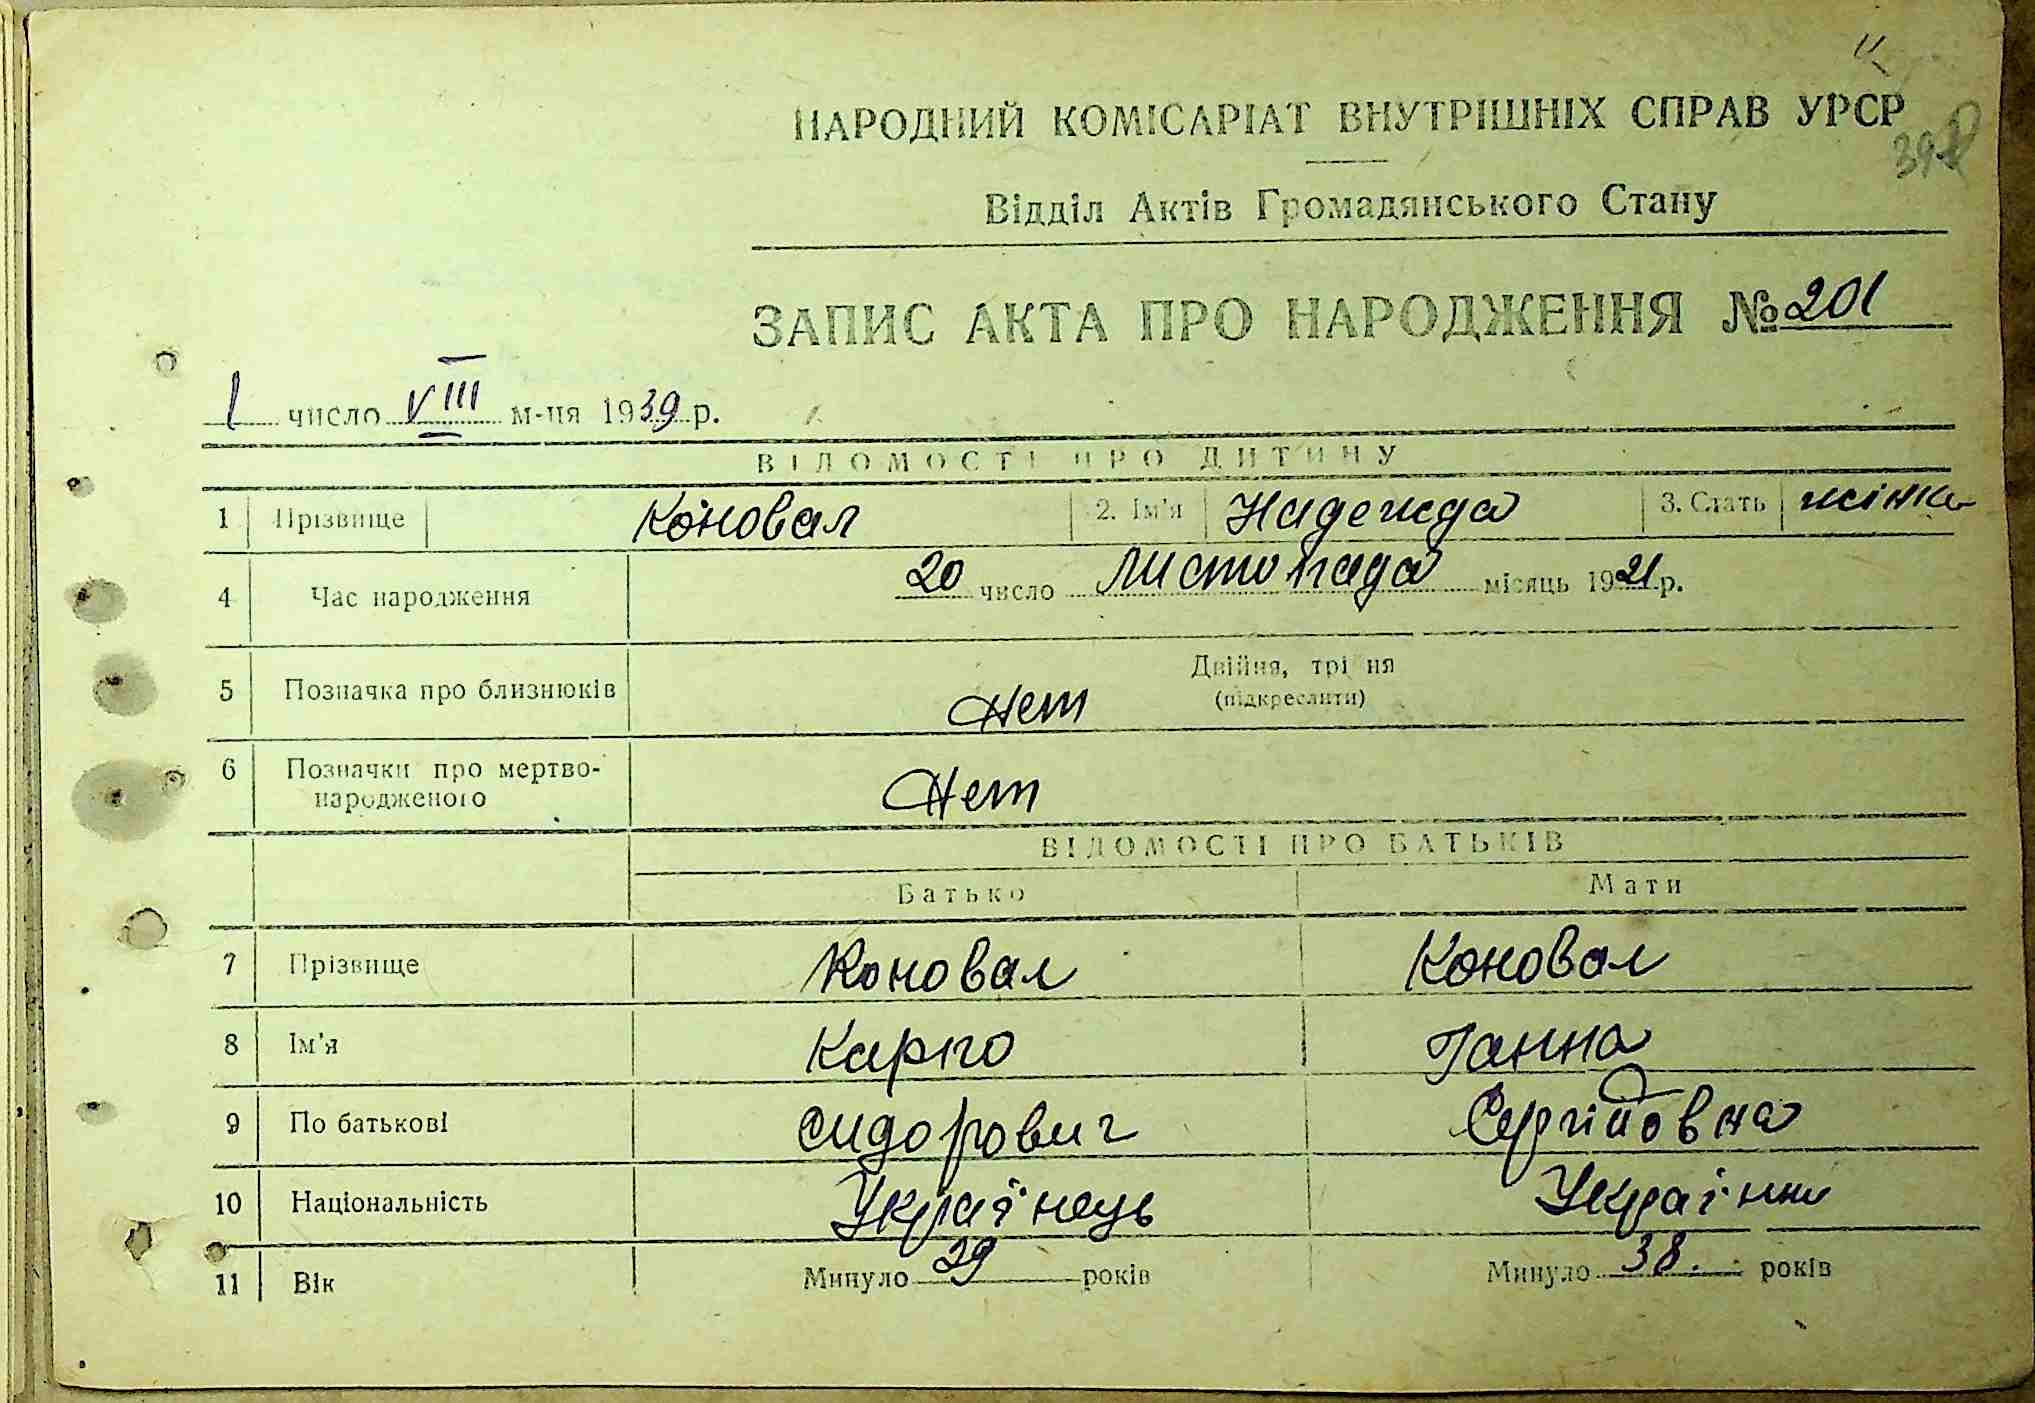 НАРОДНИЙ КОМІСАРІАТ ВНУТРІШНІХ СПРАВ УРСР
Відділ Актів Громадянського Стану
ЗАПИС АКТА ПРО НАРОДЖЕННЯ № 201
1 число VIII м-ця 1939 р.
ВІДОМОСТІ ПРО ДИТИНУ
1 Прізвище Коновал 2. Ім'я Надежда 3. Стать жінка
4 Час народження 20 число Листопада місяць 1921 р.
5 Позначка про близнюків Нет Двійня, трійня
(підкреслити)
6 Позначки про мертво-
народженого Нет
ВІДОМОСТІ ПРО БАТЬКІВ
Батько Мати
7 Прізвище Коновал Коновал
8 Ім'я Карпо Ганна
9 По батькові Сидорович Сергійовна
10 Національність Українець Українка
11 Вік Минуло 39 років Минуло 38. років